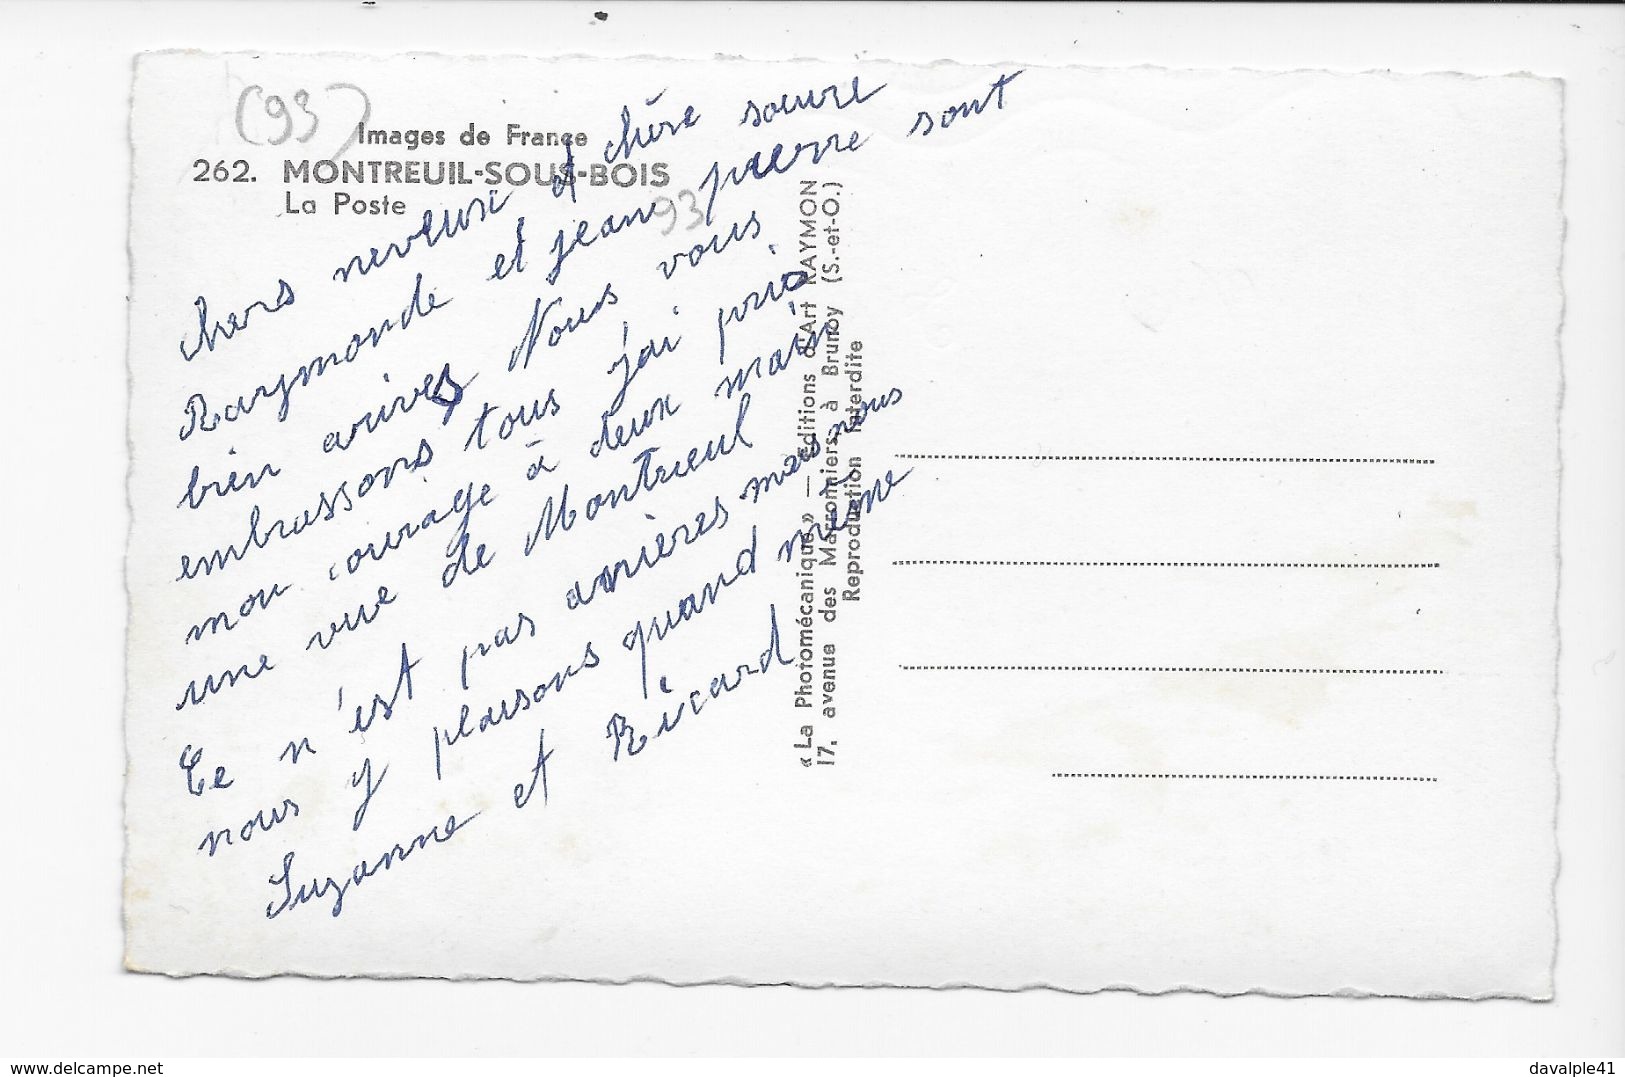 (93)
Images de France
262. MONTREUIL-SOUS-BOIS
La Poste
93
Chers neveux et chère soeure
Raymonde et jean pierre sont
bien arivés Nous vous
embrassons tous j'ai pris
mon courage à deux main
une vue de Montrieul
Ce n'est pas arrières mais nous
nous y plaisons quand même
Suzanne et Ricard
« La Photomécanique » — Editions d'Art RAYMON
17, avenue des Marronniers à Brunoy (S.-et-O.)
Reproduction Interdite
www.delcampe.net
davalple41